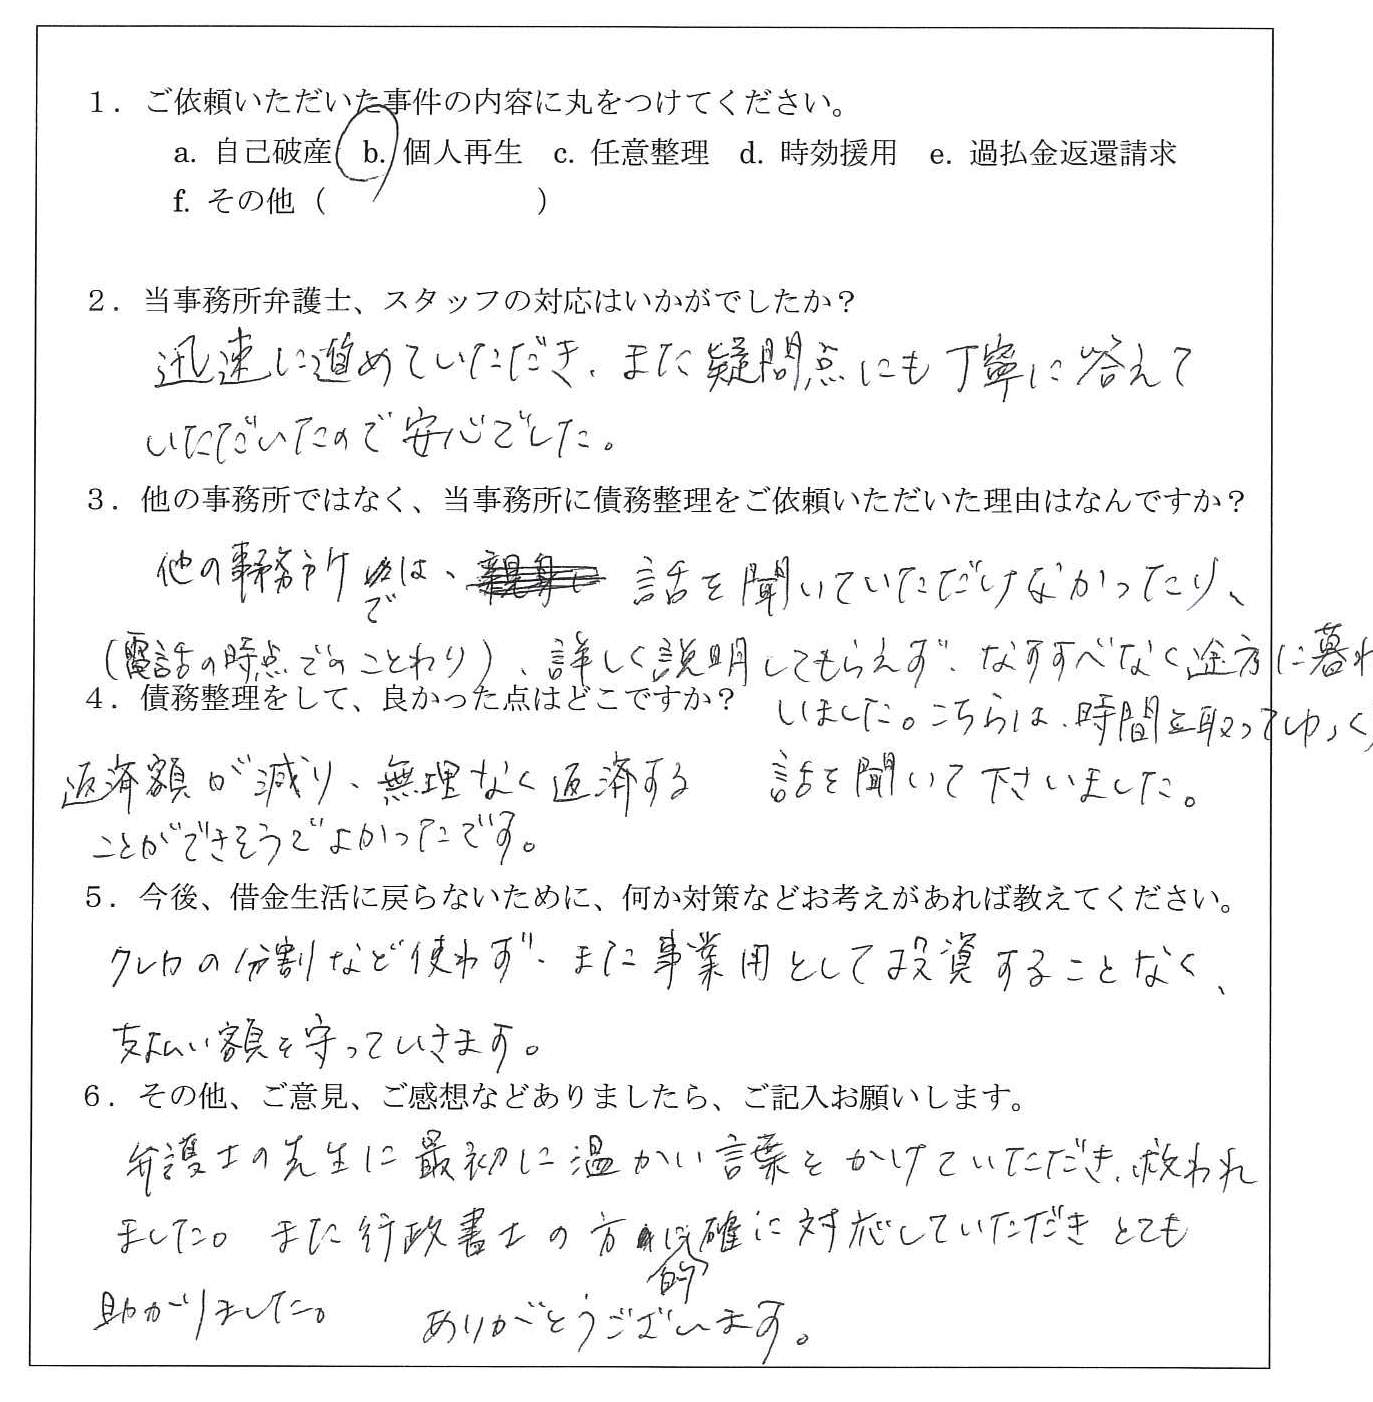 1．ご依頼いただいた事件の内容に丸をつけてください。
a. 自己破産 b. 個人再生 c. 任意整理 d. 時効援用 e. 過払金返還請求
f. その他（　　　　　　　）
2．当事務所弁護士、スタッフの対応はいかがでしたか？
迅速に進めていただき、また疑問点にも丁寧に答えて
いただいたので安心でした。
3．他の事務所ではなく、当事務所に債務整理をご依頼いただいた理由はなんですか？
他の事務所では、話を聞いていただけなかったり、
(電話の時点でのことわり)、詳しく説明してもらえず、なすすべなく途方に暮れ
いました。こちらは、時間を取ってゆっくり
話を聞いて下さいました。
4．債務整理をして、良かった点はどこですか？
返済額が減り、無理なく返済する
ことができそうでよかったです。
5．今後、借金生活に戻らないために、何か対策などお考えがあれば教えてください。
クレカの分割など使わず、また事業用として投資することなく、
支払い額を守っていきます。
6．その他、ご意見、ご感想などありましたら、ご記入お願いします。
弁護士の先生に最初に温かい言葉をかけていただき、救われ
ました。また行政書士の方に的確に対応していただきとても
助かりました。　ありがとうございます。